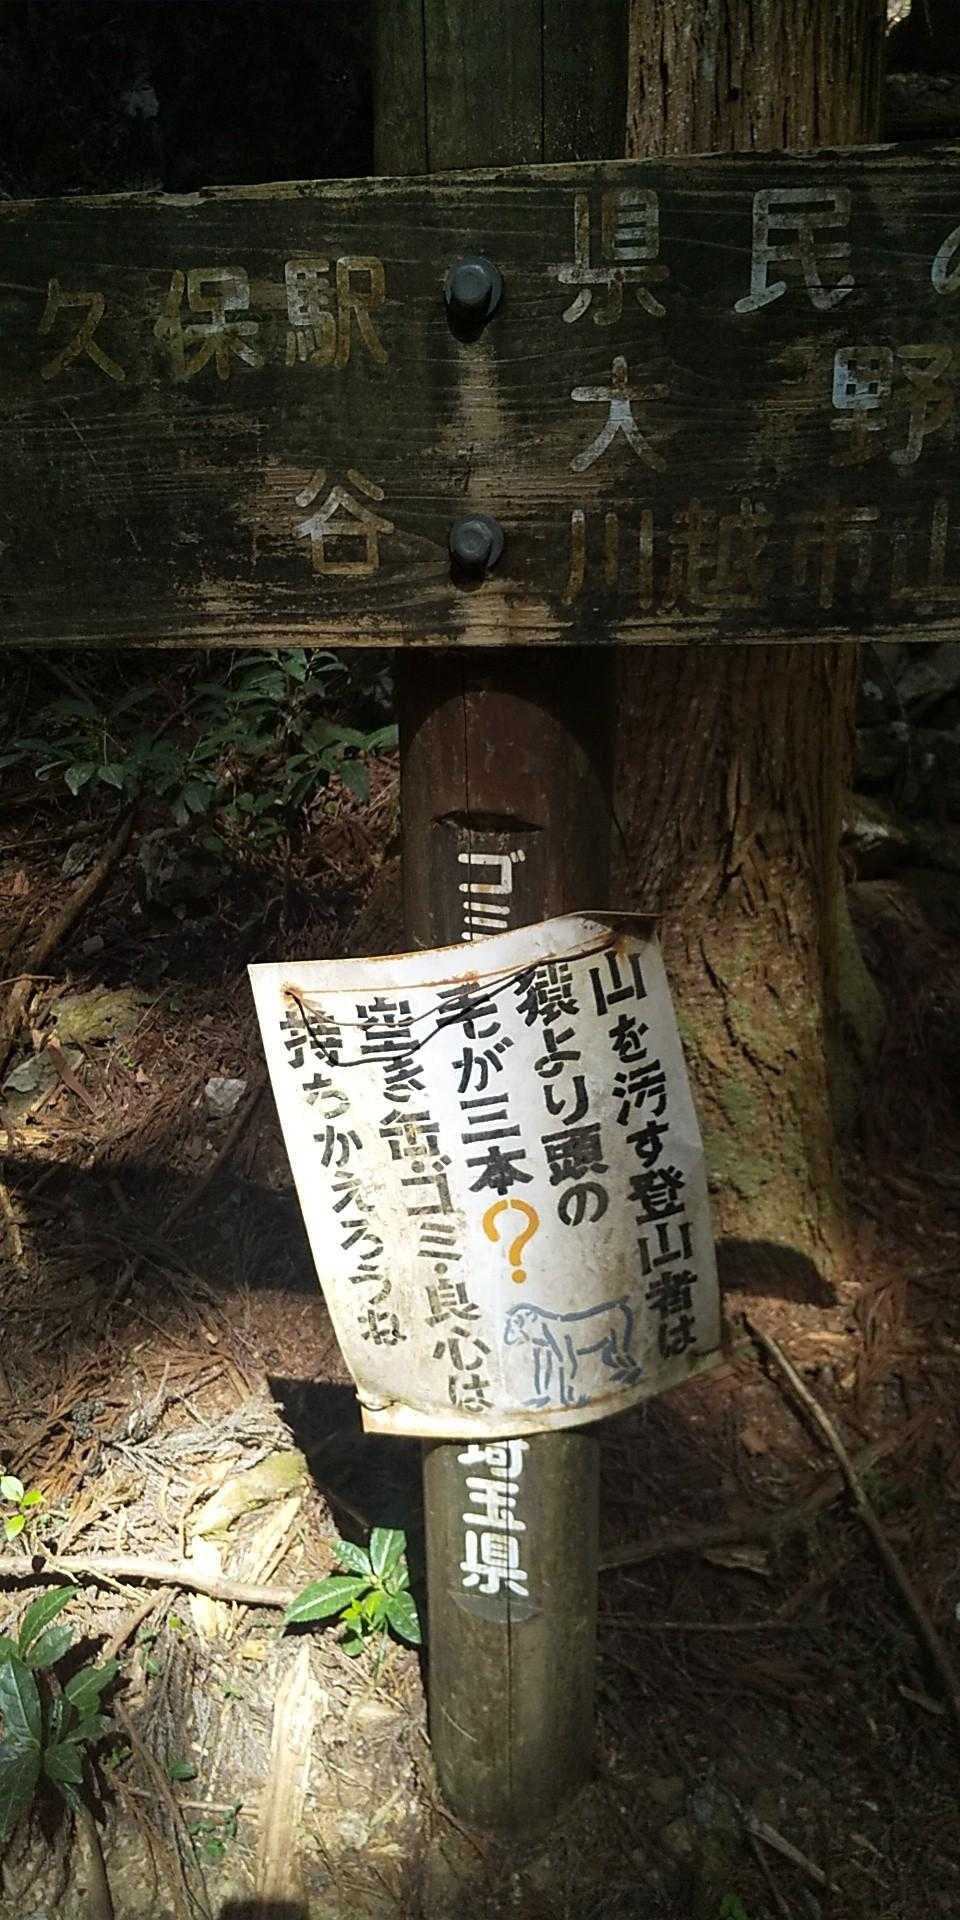 久保駅
谷
県民の
大野
川越市山
ゴミ
山を汚す登山者は
猿より頭の
毛が三本?
空き缶・ゴミ・良心は
持ちかえろうね
埼玉県